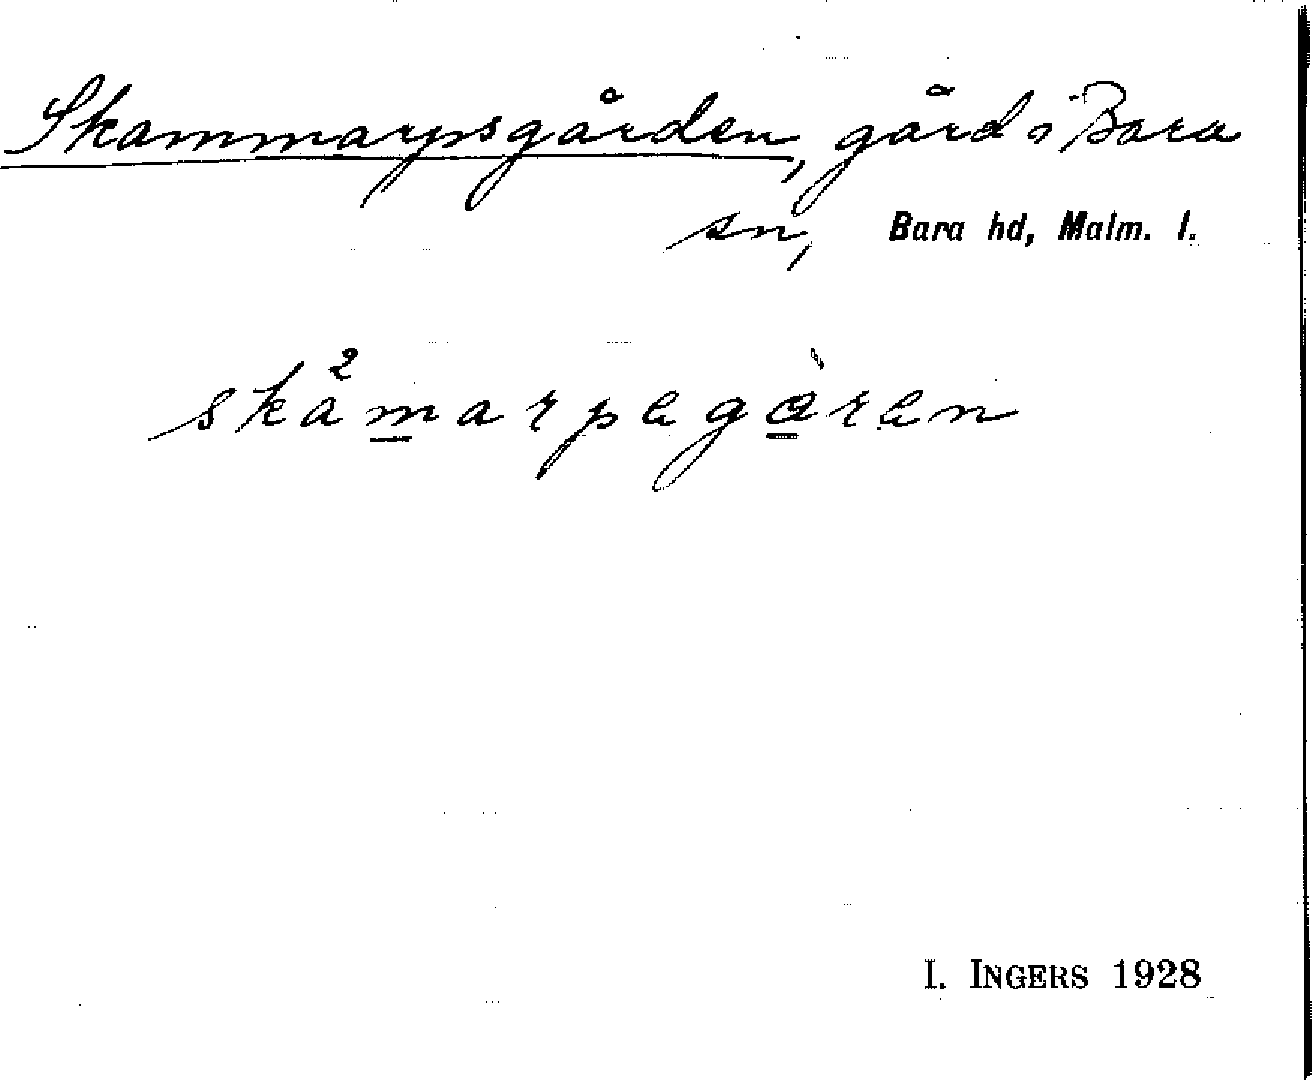 Skammarpsgården, gård i Bara
sn, Bara hd, Malm. l.
skå²marpegàren
I. INGERS 1928